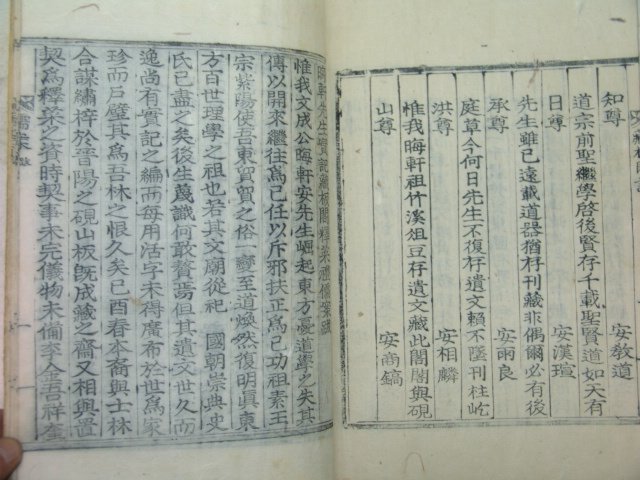 知尊
安教道
道宗前聖繼學啓後賢存千載聖賢道如天有
日尊
安漢瑄
先生雖已遠載道器猶存刊藏非偶爾必有後
承尊
安兩良
庭草今何日先生不復存遺文賴不墜刊柱屹
洪尊
安相麟
惟我晦軒祖竹溪俎豆存遺文藏此閣閣與硯
山尊
安商鎬
晦軒先生實記繡板閣釋菜稧儒案跋
惟我文成公晦軒安先生崛起東方憂道學之失其
傳以開來繼往爲己任以斥邪扶正爲己功祖素王
宗紫陽使吾東貿貿之俗一變至道煥然復明眞東
方百世理學之祖也若其文廟從祀 國朝崇典史
氏已盡之矣後生蔑識何敢贅焉但其遺文世久而
逸尚有實記之編而每用活字未得廣布於世爲家
珍而戶璧其爲吾林之恨久矣已酉春本裔與士林
合謀繡梓於晋陽之硯山板旣成藏之齋又相與置
契爲釋菜之資時契事未完儀物未備李合吾祥奎